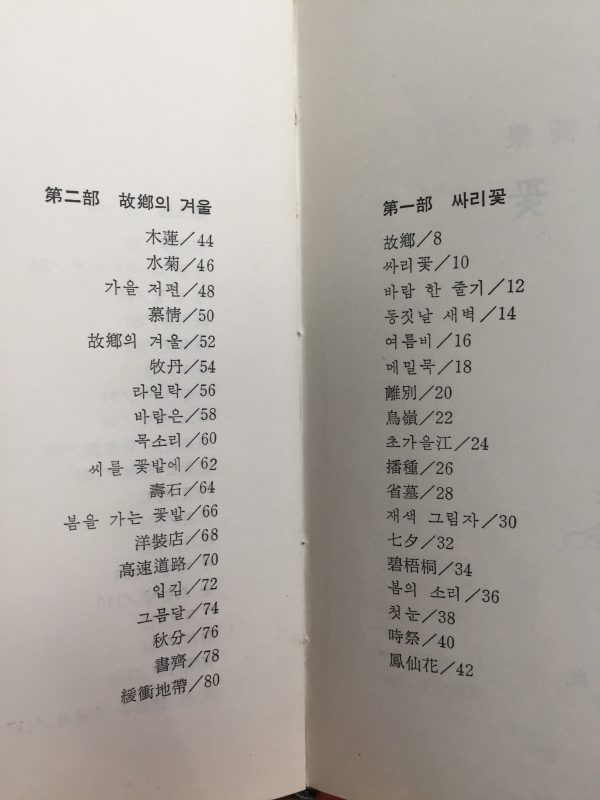 第一部 싸리꽃
故鄕/8
싸리꽃/10
바람 한 줄기/12
동짓날 새벽/14
여름비/16
메밀묵/18
離別/20
鳥嶺/22
초가을江/24
播種/26
省墓/28
재색 그림자/30
七夕/32
碧梧桐/34
봄의 소리/36
첫눈/38
時祭/40
鳳仙花/42
第二部 故鄕의 겨울
木蓮/44
水菊/46
가을 저편/48
慕情/50
故鄕의 겨울/52
牧丹/54
라일락/56
바람은/58
목소리/60
씨를 꽃밭에/62
壽石/64
봄을 가는 꽃밭/66
洋裝店/68
高速道路/70
입김/72
그믐달/74
秋分/76
書齊/78
緩衝地帶/80